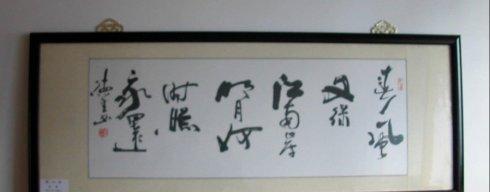 春風
又绿
江南岸
明月何
时照
我還